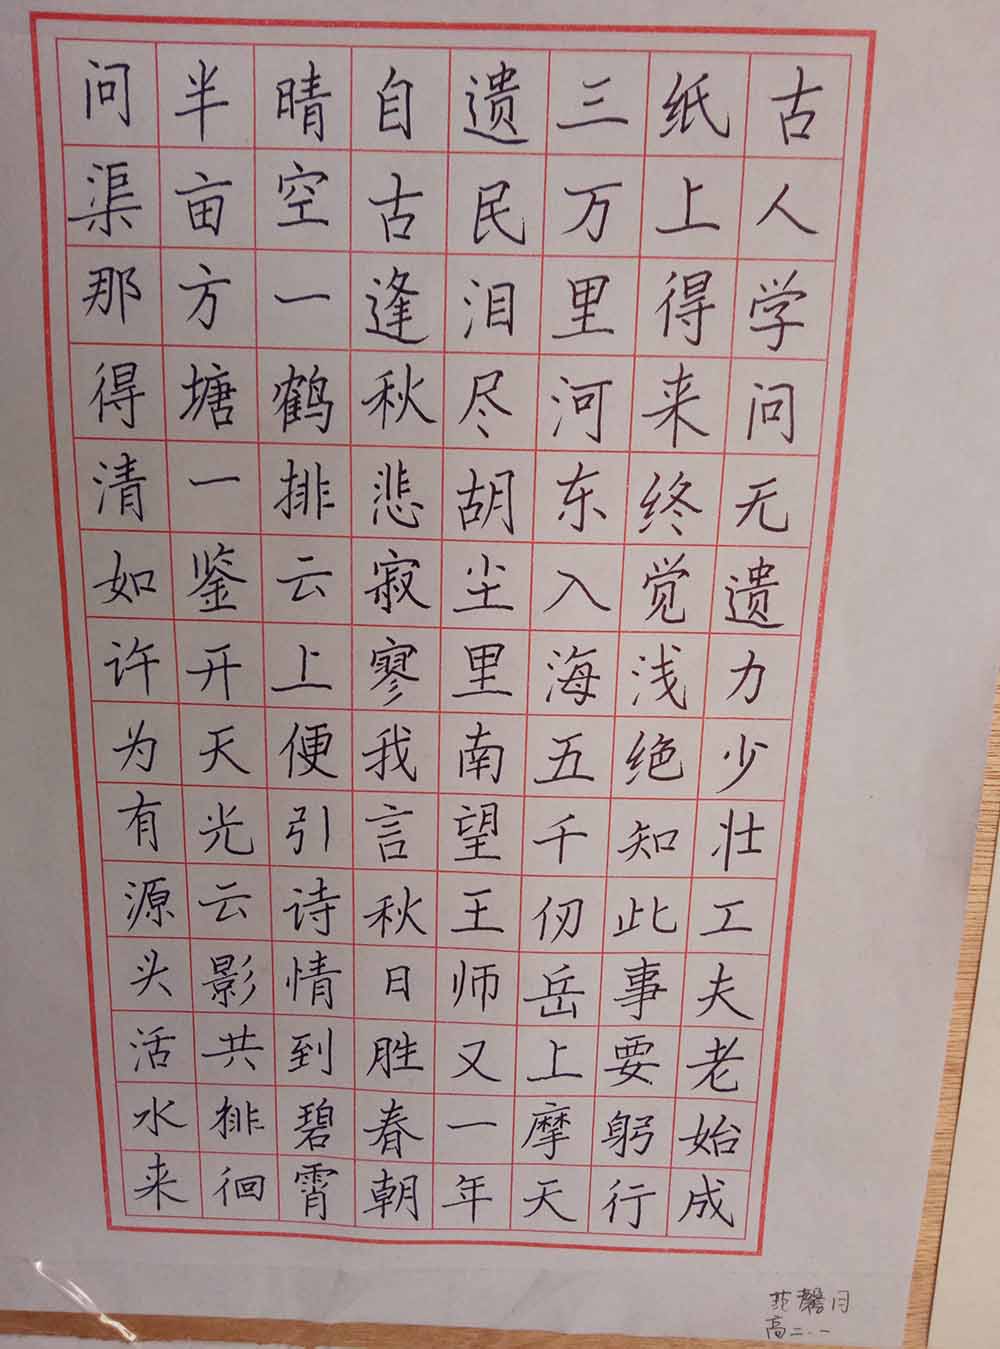 古人学问无遗力少壮工夫老始成
纸上得来终觉浅绝知此事要躬行
三万里河东入海五千仞岳上摩天
遗民泪尽胡尘里南望王师又一年
自古逢秋悲寂寥我言秋日胜春朝
晴空一鹤排云上便引诗情到碧霄
半亩方塘一鉴开天光云影共徘徊
问渠那得清如许为有源头活水来
范馨月
高二.一